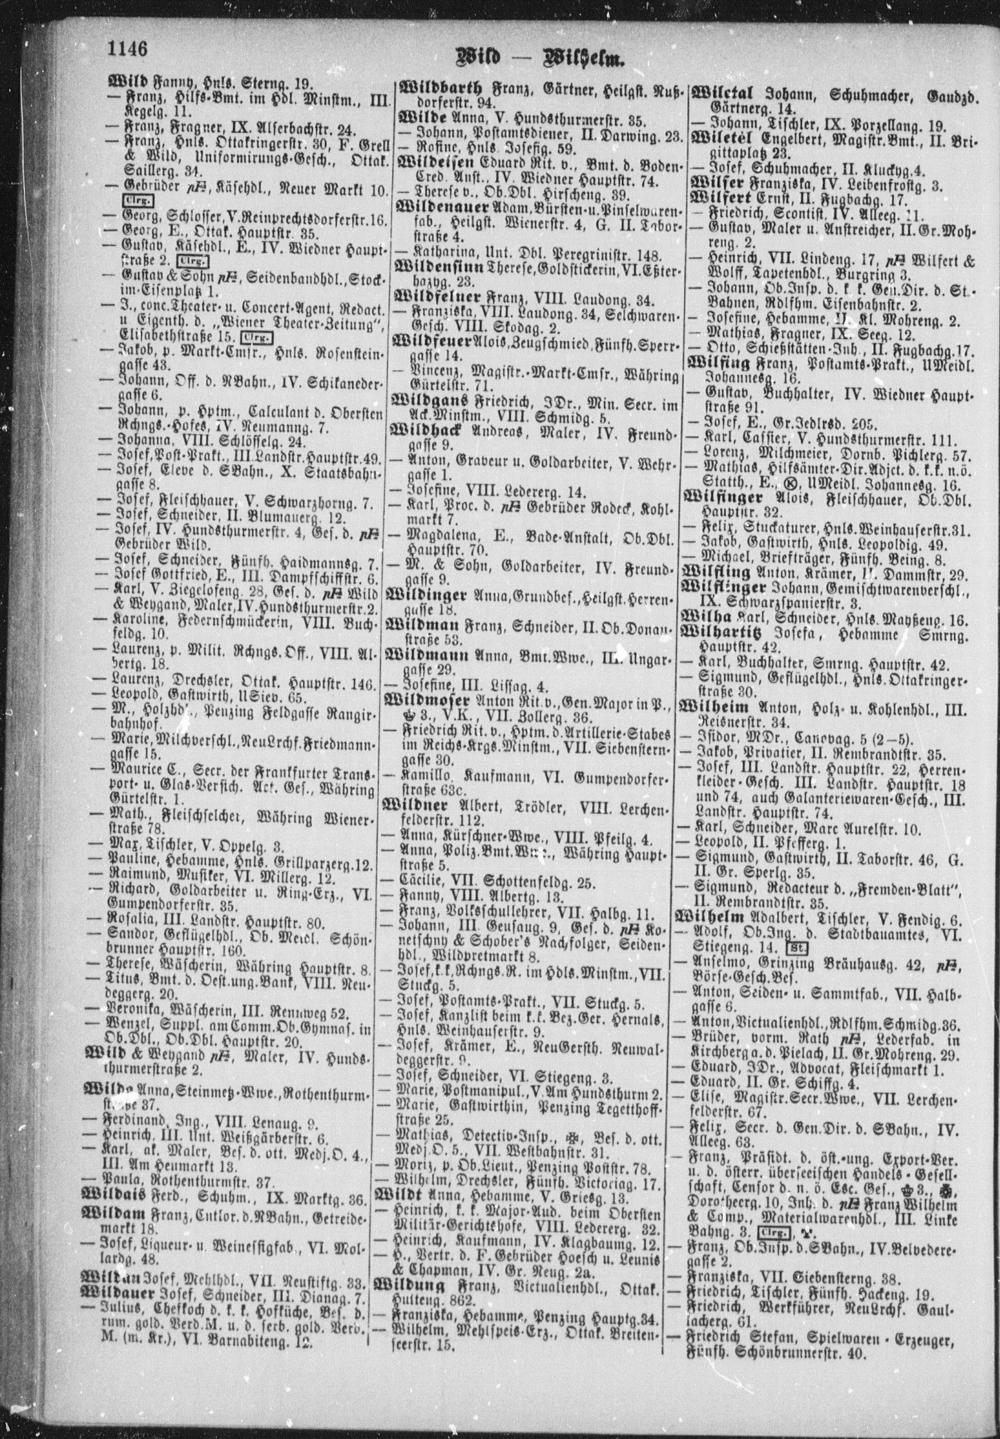 1146
Wild — Wilhelm.
Wild Fanny, Hnls. Sterng. 19.
— Franz, Hilfs-Bmt. im Hdl. Minstm., III.
Kegelg. 11.
— Franz, Fragner, IX. Alserbachstr. 24.
— Franz, Hnls. Ottakringerstr. 30, F. Grell
& Wild, Uniformirungs-Gesch., Ottak.
Saillerg. 34.
— Gebrüder pH, Käsehdl., Neuer Markt 10.
Clrg.
— Georg, Schlosser, V. Reinprechtsdorferstr. 16.
— Georg, E., Ottak. Hauptstr. 35.
— Gustav, Käsehdl., E., IV. Wiedner Haupt-
straße 2. Clrg.
— Gustav & Sohn pH, Seidenbandhdl., Stock-
im-Eisenplatz 1.
— J., conc. Theater- u. Concert-Agent, Redact.
u Eigenth. d. „Wiener Theater-Zeitung",
Elisabethstraße 15. Clrg.
— Jakob, p. Markt-Cmsr., Hnls. Rosenstein-
gasse 43.
— Johann, Off. d. NBahn., IV. Schikaneder-
gasse 6.
— Johann, p. Hptm., Calculant d. Obersten
Rchngs.-Hofes, IV. Neumanng. 7.
— Johanna, VIII. Schlösselg. 24.
— Josef, Post-Prakt., III. Landstr. Hauptstr. 49.
— Josef, Eleve d. SBahn., X. Staatsbahn-
gasse 8.
— Josef, Fleischhauer, V. Schwarzhorng. 7.
— Josef, Schneider, II. Blumauerg. 12.
— Josef, IV. Hundsthurmerstr. 4, Ges. d. pH
Gebrüder Wild.
— Josef, Schneider, Fünfh. Haidmannsg. 7.
— Josef Gottfried, E., III. Dampfschiffstr. 6.
— Karl, V. Ziegelofeng. 28, Ges. d. pH Wild
& Weygand, Maler, IV. Hundsthurmerstr. 2.
— Karoline, Federnschmückerin, VIII. Buch-
feldg. 10.
— Laurenz, p. Milit. Rchngs. Off., VIII. Al-
bertg. 18.
— Laurenz, Drechsler, Ottak. Hauptstr. 146.
— Leopold, Gastwirth, USiev. 65.
— M., Holzhdl., Penzing Feldgasse Rangir-
bahnhof.
— Marie, Milchverschl., NeuLrchf. Friedmann-
gasse 15.
— Maurice C., Secr. der Frankfurter Trans-
port- u. Glas-Versich. Act. Ges., Währing
Gürtelstr. 1.
— Math., Fleischselcher, Währing Wiener-
straße 78.
— Max, Tischler, V. Oppelg. 3.
— Pauline, Hebamme, Hnls. Grillparzerg. 12.
— Raimund, Musiker, VI. Millerg. 12.
— Richard, Goldarbeiter u. Ring-Erz., VI.
Gumpendorferstr. 35.
— Rosalia, III. Landstr. Hauptstr. 80.
— Sandor, Geflügelhdl., Ob. Meidl. Schön-
brunner Hauptstr. 160.
— Therese, Wäscherin, Währing Hauptstr. 8.
— Titus, Bmt. d. Oest. ung. Bank, VIII. Neu-
deggerg. 20.
— Veronika, Wäscherin, III. Rennweg 52.
— Wenzel, Suppl. am Comm. Ob. Gymnas. in
Ob. Dbl., Ob. Dbl. Hauptstr. 20.
Wild & Weygand pH, Maler, IV. Hunds-
thurmerstraße 2.
Wilde Anna, Steinmetz-Wwe., Rothenthurm-
straße 37.
— Ferdinand, Ing., VIII. Lenaug. 9.
— Heinrich, III. Unt. Weißgärberstr. 6.
— Karl, ak. Maler, Bes. d. ott. Medj. O. 4.,
III. Am Heumarkt 13.
— Paula, Rothenthurmstr. 37.
Wildais Ferd., Schuhm., IX. Marktg. 36.
Wildam Franz, Cntlor. d. NBahn., Getreide-
markt 18.
— Josef, Liqueur- u. Weinessigfab., VI. Mol-
lardg. 48.
Wildan Josef, Mehlhdl., VII. Neustiftg. 33.
Wildauer Josef, Schneider, III. Dianag. 7.
— Julius, Chefkoch d. k. k. Hofküche, Bes. d.
rum. gold. Verd. M. u. d. serb. gold. Verd.
M. (m. Kr.), VI. Barnabiteng. 12.
Wildbarth Franz, Gärtner, Heilgst. Nuß-
dorferstr. 94.
Wilde Anna, V. Hundsthurmerstr. 35.
— Johann, Postamtsdiener, II. Darwing. 23.
— Rosine, Hnls. Josefig. 59.
Wildeisen Eduard Rit. v., Bmt. d. Boden-
Cred. Anst., IV. Wiedner Hauptstr. 74.
— Therese v., Ob. Dbl. Hirscheng. 39.
Wildenauer Adam, Bürsten- u. Pinselwaren-
fab., Heilgst. Wienerstr. 4, G. II. Tabor-
straße 4.
— Katharina, Unt. Dbl. Peregrinistr. 148.
Wildensinn Therese, Goldstickerin, VI. Eßter-
hazyg. 23.
Wildfelner Franz, VIII. Laudong. 34.
— Franziska, VIII. Laudong. 34, Selchwaren-
Gesch. VIII. Skodag. 2.
Wildfeuer Alois, Zeugschmied, Fünfh. Sperr-
gasse 14.
— Vincenz, Magistr.-Markt-Cmsr., Währing
Gürtelstr. 71.
Wildgans Friedrich, JDr., Min. Secr. im
Ack. Minstm., VIII. Schmidg. 5.
Wildhack Andreas, Maler, IV. Freund-
gasse 9.
— Anton, Graveur u. Goldarbeiter, V. Wehr-
gasse 1.
— Josefine, VIII. Ledererg. 14.
— Karl, Proc. d. pH Gebrüder Rodeck, Kohl-
markt 7.
— Magdalena, E., Bade-Anstalt, Ob. Dbl.
Hauptstr. 70.
— M. & Sohn, Goldarbeiter, IV. Freund-
gasse 9.
Wildinger Anna, Grundbes., Heilgst. Herren-
gasse 18.
Wildman Franz, Schneider, II. Ob. Donau-
straße 53.
Wildmann Anna, Bmt. Wwe., III. Ungar-
gasse 29.
— Josefine, III. Lissag. 4.
Wildmoser Anton Rit. v., Gen. Major in P.,
3., V.K., VII. Zollerg. 36.
— Friedrich Rit. v., Hptm. d. Artillerie-Stabes
im Reichs-Krgs. Minstm., VII. Siebenstern-
gasse 30.
— Kamillo, Kaufmann, VI. Gumpendorfer-
straße 63c.
Wildner Albert, Trödler, VIII. Lerchen-
felderstr. 112.
— Anna, Kürschner-Wwe., VIII. Pfeilg. 4.
— Anna, Poliz. Bmt. Wwe., Währing Haupt-
straße 5.
— Cäcilie, VII. Schottenfeldg. 25.
— Fanny, VIII. Albertg. 13.
— Franz, Volksschullehrer, VII. Halbg. 11.
— Johann, III. Geusaug. 9, Ges. d. pH Ko-
netschny & Schober's Nachfolger, Seiden-
hdl., Wildpretmarkt 8.
— Josef, k. k. Rchngs. R. im Hdls. Minstm., VII.
Stuckg. 5.
— Josef, Postamts-Prakt., VII. Stuckg. 5.
— Josef, Kanzlist beim k. k. Bez. Ger. Hernals,
Hnls. Weinhauserstr. 9.
— Josef, Krämer, E., NeuGersth. Neuwal-
deggerstr. 9.
— Josef, Schneider, VI. Stiegeng. 3.
— Marie, Postmanipul., V. Am Hundsthurm 2.
— Marie, Gastwirthin, Penzing Tegetthoff-
straße 25.
— Mathias, Detectiv-Insp., Bes. d. ott.
Medj. O. 5., VII. Westbahnstr. 31.
— Moriz, p. Ob. Lieut., Penzing Poststr. 78.
— Wilhelm, Drechsler, Fünfh. Victoriag. 17.
Wildt Anna, Hebamme, V. Griesg. 13.
— Heinrich, k. k. Major-Aud. beim Obersten
Militär-Gerichtshofe, VIII. Ledererg. 32.
— Heinrich, Kaufmann, IV. Klagbaumg. 12.
— H., Vertr. d. F. Gebrüder Hoesch u. Leunis
& Chapman, IV. Gr. Neug. 2a.
Wildung Franz, Victualienhdl., Ottak.
Hutteng. 862.
— Franziska, Hebamme, Penzing Hauptg. 34.
— Wilhelm, Mehlspeis-Erz., Ottak. Breiten-
seerstr. 15.
Wiletal Johann, Schuhmacher, Gaudzd.
Gärtnerg. 14.
— Johann, Tischler, IX. Porzellang. 19.
Wiletěl Engelbert, Magistr. Bmt., II. Bri-
gittaplatz 23.
— Josef, Schuhmacher, II. Kluckyg. 4.
Wilfer Franziska, IV. Leibenfrostg. 3.
Wilfert Ernst, II. Fugbachg. 17.
— Friedrich, Scontist, IV. Alleeg. 11.
— Gustav, Maler u. Anstreicher, II. Gr. Moh-
reng. 2.
— Heinrich, VII. Lindeng. 17, pH Wilfert &
Wolff, Tapetenhdl., Burgring 3.
— Johann, Ob. Insp. d. k. k. Gen. Dir. d. St.-
Bahnen, Rdlfhm. Eisenbahnstr. 2.
— Josefine, Hebamme, II. Kl. Mohreng. 2.
— Mathias, Fragner, IX. Seeg. 12.
— Otto, Schießstätten-Inh., II. Fugbachg. 17.
Wilfing Franz, Postamts-Prakt., UMeidl.
Johannesg. 16.
— Gustav, Buchhalter, IV. Wiedner Haupt-
straße 91.
— Josef, E., Gr. Jedlrsd. 205.
— Karl, Cassier, V. Hundsthurmerstr. 111.
— Lorenz, Milchmeier, Dornb. Pichlerg. 57.
— Mathias, Hilfsämter-Dir. Adjct. d. k. k. n. ö.
Statth., E., UMeidl. Johannesg. 16.
Wilfinger Alois, Fleischhauer, Ob. Dbl.
Hauptstr. 32.
— Felix, Stuckaturer, Hnls. Weinhauserstr. 31.
— Jakob, Gastwirth, Hnls. Leopoldig. 49.
— Michael, Briefträger, Fünfh. Being. 8.
Wilfling Anton, Krämer, II. Dammstr. 29.
Wilflinger Johann, Gemischtwarenverschl.,
IX. Schwarzspanierstr. 3.
Wilha Karl, Schneider, Hnls. Mayßeng. 16.
Wilhartitz Josefa, Hebamme Smrng.
Hauptstr. 42.
— Karl, Buchhalter, Smrng. Hauptstr. 42.
— Sigmund, Geflügelhdl., Hnls. Ottakringer-
straße 30.
Wilheim Anton, Holz- u. Kohlenhdl., III.
Reisnerstr. 34.
— Isidor, MDr., Canovag. 5 (2—5).
— Jakob, Privatier, II. Rembrandtstr. 35.
— Josef, III. Landstr. Hauptstr. 22, Herren-
kleider-Gesch. III. Landstr. Hauptstr. 18
und 74, auch Galanteriewaren-Gesch., III.
Landstr. Hauptstr. 74.
— Karl, Schneider, Marc Aurelstr. 10.
— Leopold, II. Pfefferg. 1.
— Sigmund, Gastwirth, II. Taborstr. 46, G.
II. Gr. Sperlg. 35.
— Sigmund, Redacteur d. „Fremden-Blatt",
II. Rembrandtstr. 35.
Wilhelm Adalbert, Tischler, V. Fendig. 6.
— Adolf, Ob. Ing. d. Stadtbauamtes, VI.
Stiegeng. 14. St.
— Anselmo, Grinzing Bräuhausg. 42, pH,
Börse-Gesch. Bes.
— Anton, Seiden- u. Sammtfab., VII. Halb-
gasse 6.
— Anton, Victualienhdl., Rdlfhm. Schmidg. 36.
— Brüder, vorm. Rath pH, Lederfab. in
Kirchberg a. d. Pielach, II. Gr. Mohreng. 29.
— Eduard, JDr., Advocat, Fleischmarkt 1.
— Eduard, II. Gr. Schiffg. 4.
— Elise, Magistr. Secr. Wwe., VII. Lerchen-
felderstr. 67.
— Felix, Secr. d. Gen. Dir. d. SBahn., IV.
Alleeg. 63.
— Franz, Präsidt. d. öst.-ung. Export-Ver.
u. d. österr. überseeischen Handels-Gesell-
schaft, Censor d. n. ö. Esc. Ges., 3.,
Dorotheerg. 10, Inh. d. pH Franz Wilhelm
& Comp., Materialwarenhdl., III. Linke
Bahng. 3. Clrg.,
— Franz, Ob. Insp. d. SBahn., IV. Belvedere-
gasse 2.
— Franziska, VII. Siebensterng. 38.
— Friedrich, Tischler, Fünfh. Hackeng. 19.
— Friedrich, Werkführer, NeuLrchf. Gaul-
lacherg. 61.
— Friedrich Stefan, Spielwaren-Erzeuger,
Fünfh. Schönbrunnerstr. 40.